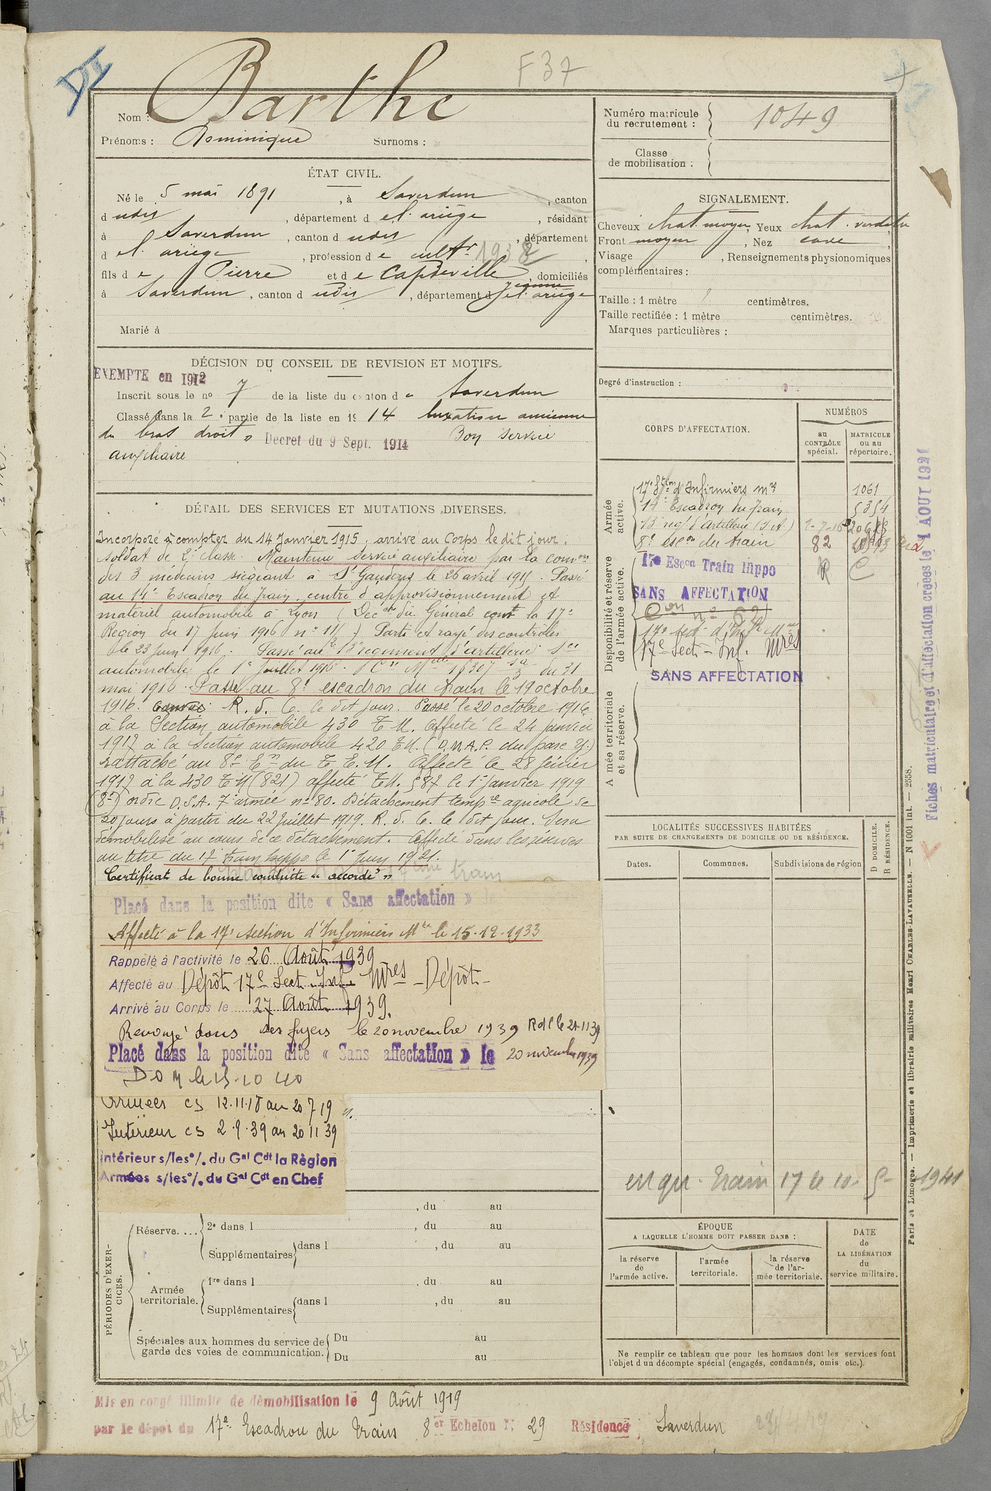 F37
Nom : Barthe
Prénoms : Dominique Surnoms :
ÉTAT CIVIL.
Né le 5 mai 1891, à Saverdun, canton
d udis, département d e l'ariège, résidant
à Saverdun, canton d udis, département
d e l'ariège, profession d e cultr 1932
fils d e Pierre et d e Capdeville Jeanne, domiciliés
à Saverdun, canton d udis, département d e l'ariège
Marié à
DÉCISION DU CONSEIL DE REVISION ET MOTIFS.
EXEMPTÉ en 1912
Inscrit sous le n° 7 de la liste du canton d e Saverdun
Classé dans la 2e partie de la liste en 1914 luxation ancienne
du bras droit Décret du 9 Sept. 1914 Bon service
auxiliaire
DÉTAIL DES SERVICES ET MUTATIONS DIVERSES.
Incorporé à compter du 14 Janvier 1915, arrivé au Corps le dit jour,
soldat de 2e classe. Maintenu service auxiliaire par la comon
des 3 médecins siégeant à St Gaudens le 26 avril 1915. Passé
au 14e Escadron du Train, centre d'approvisionnement et
matériel automobile à Lyon (Déc. du Général cont la 17e
Région du 17 juin 1916 n° 111) Parti et rayé des contrôles
le 23 juin 1916. Passé au Régiment d'artillerie
automobile le 1er Juillet 1916. du 31
mai 1916. Passé au 8e escadron du train le 19 octobre
1916. R. D. C. le dit jour. Passé le 20 octobre 1916
à la Section automobile 430 T.M. Affecté le 24 janvier
1917 à la Section automobile 420 T.M. (D.M.A.P. du parc 9)
rattaché au 8e Eon du T.E.M. Affecté le 28 février
1917 à la 430 T.M (821) affecté T.M. 587 le 1er janvier 1919
(8e) ordre D.S.A. 7e armée n° 80. Détachement tempre agricole de
20 jours à partir du 22 juillet 1919. R. D. C. le dit jour. Sera
démobilisé au cours de ce détachement. Affecté dans les réserves
au titre du 17e Train hippo le 1er Juin 1921.
Certificat de bonne conduite « accordé »
Placé dans la position dite « Sans affectation » le
Affecté à la 17e Section d'Infirmiers Mres le 15-12-1933
Rappelé à l'activité le 26 Août 1939
Affecté au Dépôt 17e Sect. Inf. Mres - Dépôt -
Arrivé au Corps le 27 Août 1939.
Renvoyé dans ses foyers le 20 novembre 1939 Rdl le 21 11 39
Placé dans la position dite « Sans affectation » le 20 novembre 1939
D O M le 15-10 40
Armées cs 12.11.18 au 20 7 19
Intérieur cs 2.9.39 au 20 11 39
Intérieur s/les °/. du Gal Cdt la Région
Armées s/les °/. du Gal Cdt en Chef
PÉRIODES D'EXERCICES.
, du au
Réserve.... 2e dans l , du au
Supplémentaires dans l , du au
Armée territoriale. 1re dans l , du au
Supplémentaires dans l , du au
Spéciales aux hommes du service de garde des voies de communication. Du au
Du au
Mis en congé illimité de démobilisation le 9 Août 1919
par le dépôt du 17e Escadron du Train 8er Echelon N° 29 Résidence Saverdun
Numéro matricule du recrutement : 1049
Classe de mobilisation :
SIGNALEMENT.
Cheveux chat. moyen, Yeux chat. verdatre
Front moyen, Nez cave
Visage , Renseignements physionomiques
complémentaires :
Taille : 1 mètre centimètres.
Taille rectifiée : 1 mètre centimètres.
Marques particulières :
Degré d'instruction :
CORPS D'AFFECTATION.
NUMÉROS
au CONTRÔLE spécial.
MATRICULE ou au répertoire.
Armée active.
17e Son d'Infirmiers mres 1061
14e Escadron du Train 5354
13e régt d'Artillerie
8e escon du train 82
Disponibilité et réserve de l'armée active.
17e Escon Train Hippo
SANS AFFECTATION
17e Sect. Inf. Mres
SANS AFFECTATION
Armée territoriale et sa réserve.
LOCALITÉS SUCCESSIVES HABITÉES
PAR SUITE DE CHANGEMENTS DE DOMICILE OU DE RÉSIDENCE.
Dates. Communes. Subdivisions de région
D DOMICILE. R RÉSIDENCE.
Train 17 le 10- 5- 1941
ÉPOQUE
A LAQUELLE L'HOMME DOIT PASSER DANS :
la réserve de l'armée active.
l'armée territoriale.
la réserve de l'armée territoriale.
DATE de LA LIBÉRATION du service militaire.
Ne remplir ce tableau que pour les hommes dont les services font
l'objet d'un décompte spécial (engagés, condamnés, omis etc.).
Fiches matriculaire et d'affectation créées le 1 AOUT 1921
Paris et Limoges. — Imprimerie et librairie militaires Henri CHARLES-LAVAUZELLE. — N 1001 Int. — 2558.